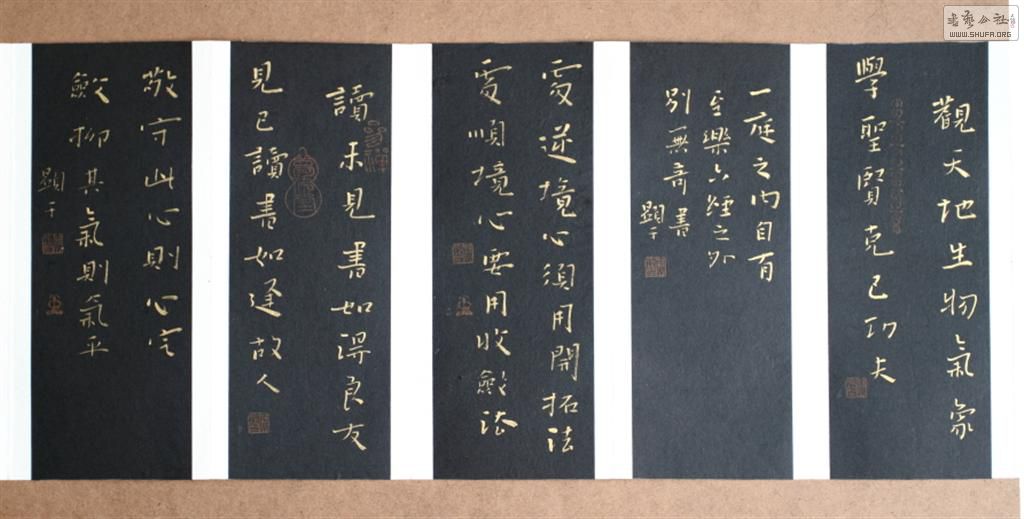 觀天地生物氣象
學聖賢克己功夫
一庭之內自有
至樂六經之外
別無奇書
顯千
處逆境心須用開拓法
處順境心要用收斂法
讀未見書如得良友
見已讀書如逢故人
敬守此心則心定
斂抑其氣則氣平
書藝公社
WWW.SHUFA.ORG